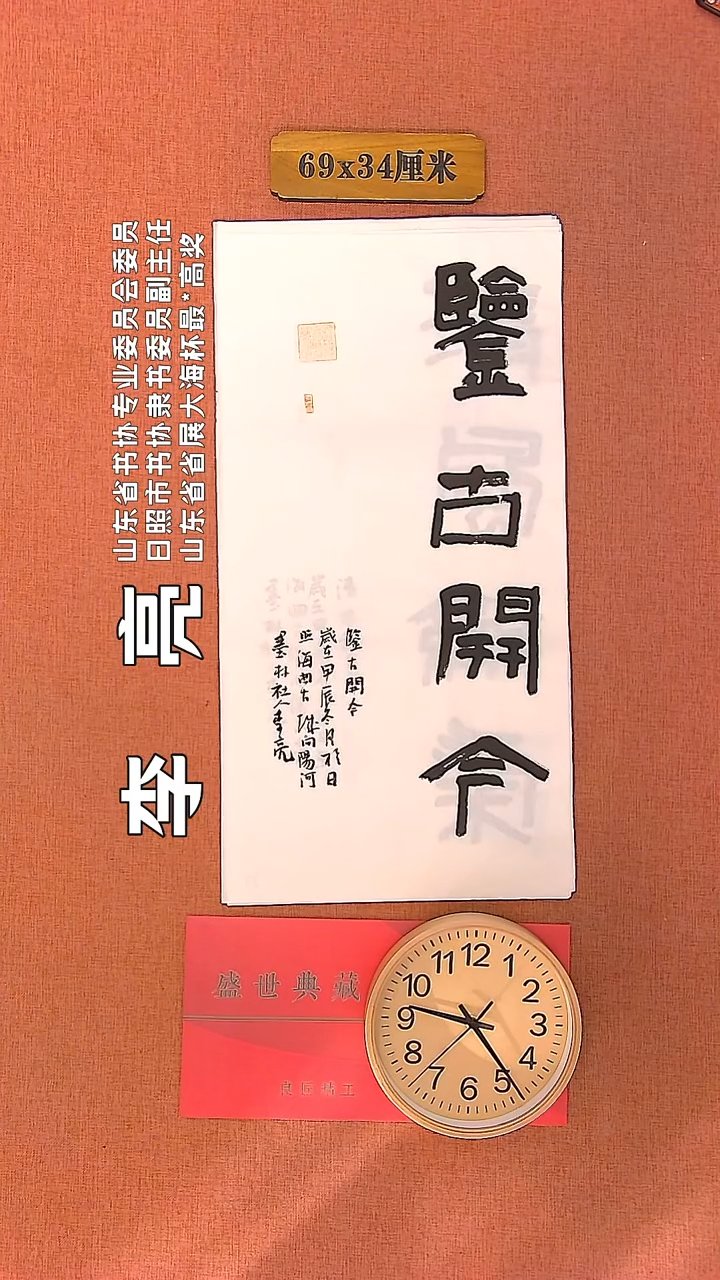 69x34厘米
李亮
山东省书协专业委员会委员
日照市书协隶书委员副主任
山东省省展大海杯最*高奖
鑒古開今
鑒古開今
歲在甲辰冬月於日
照海曲古城向陽河
墨林社人李亮
盛世典藏
良匠精工
12
1
2
3
4
5
6
7
8
9
10
11